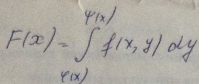 F(x) = ∫_{φ(x)}^{ψ(x)} f(x, y) dy